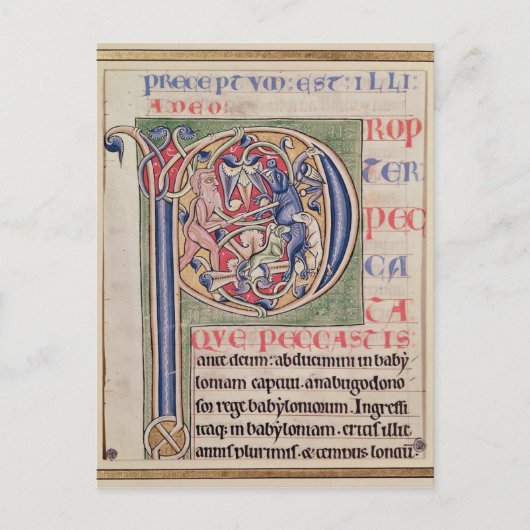 PRECEPTVM: EST: ILLI:
A DEO:
PROP
TER.
PEC
CA
TA
QVE PECCASTIS
ante deum: abducimini in baby
loniam captiui. a nabugodono
sor rege babyloniorum. Ingressi
itaq; in babyloniam. eritis illic
annis plurimis. & tempus longū